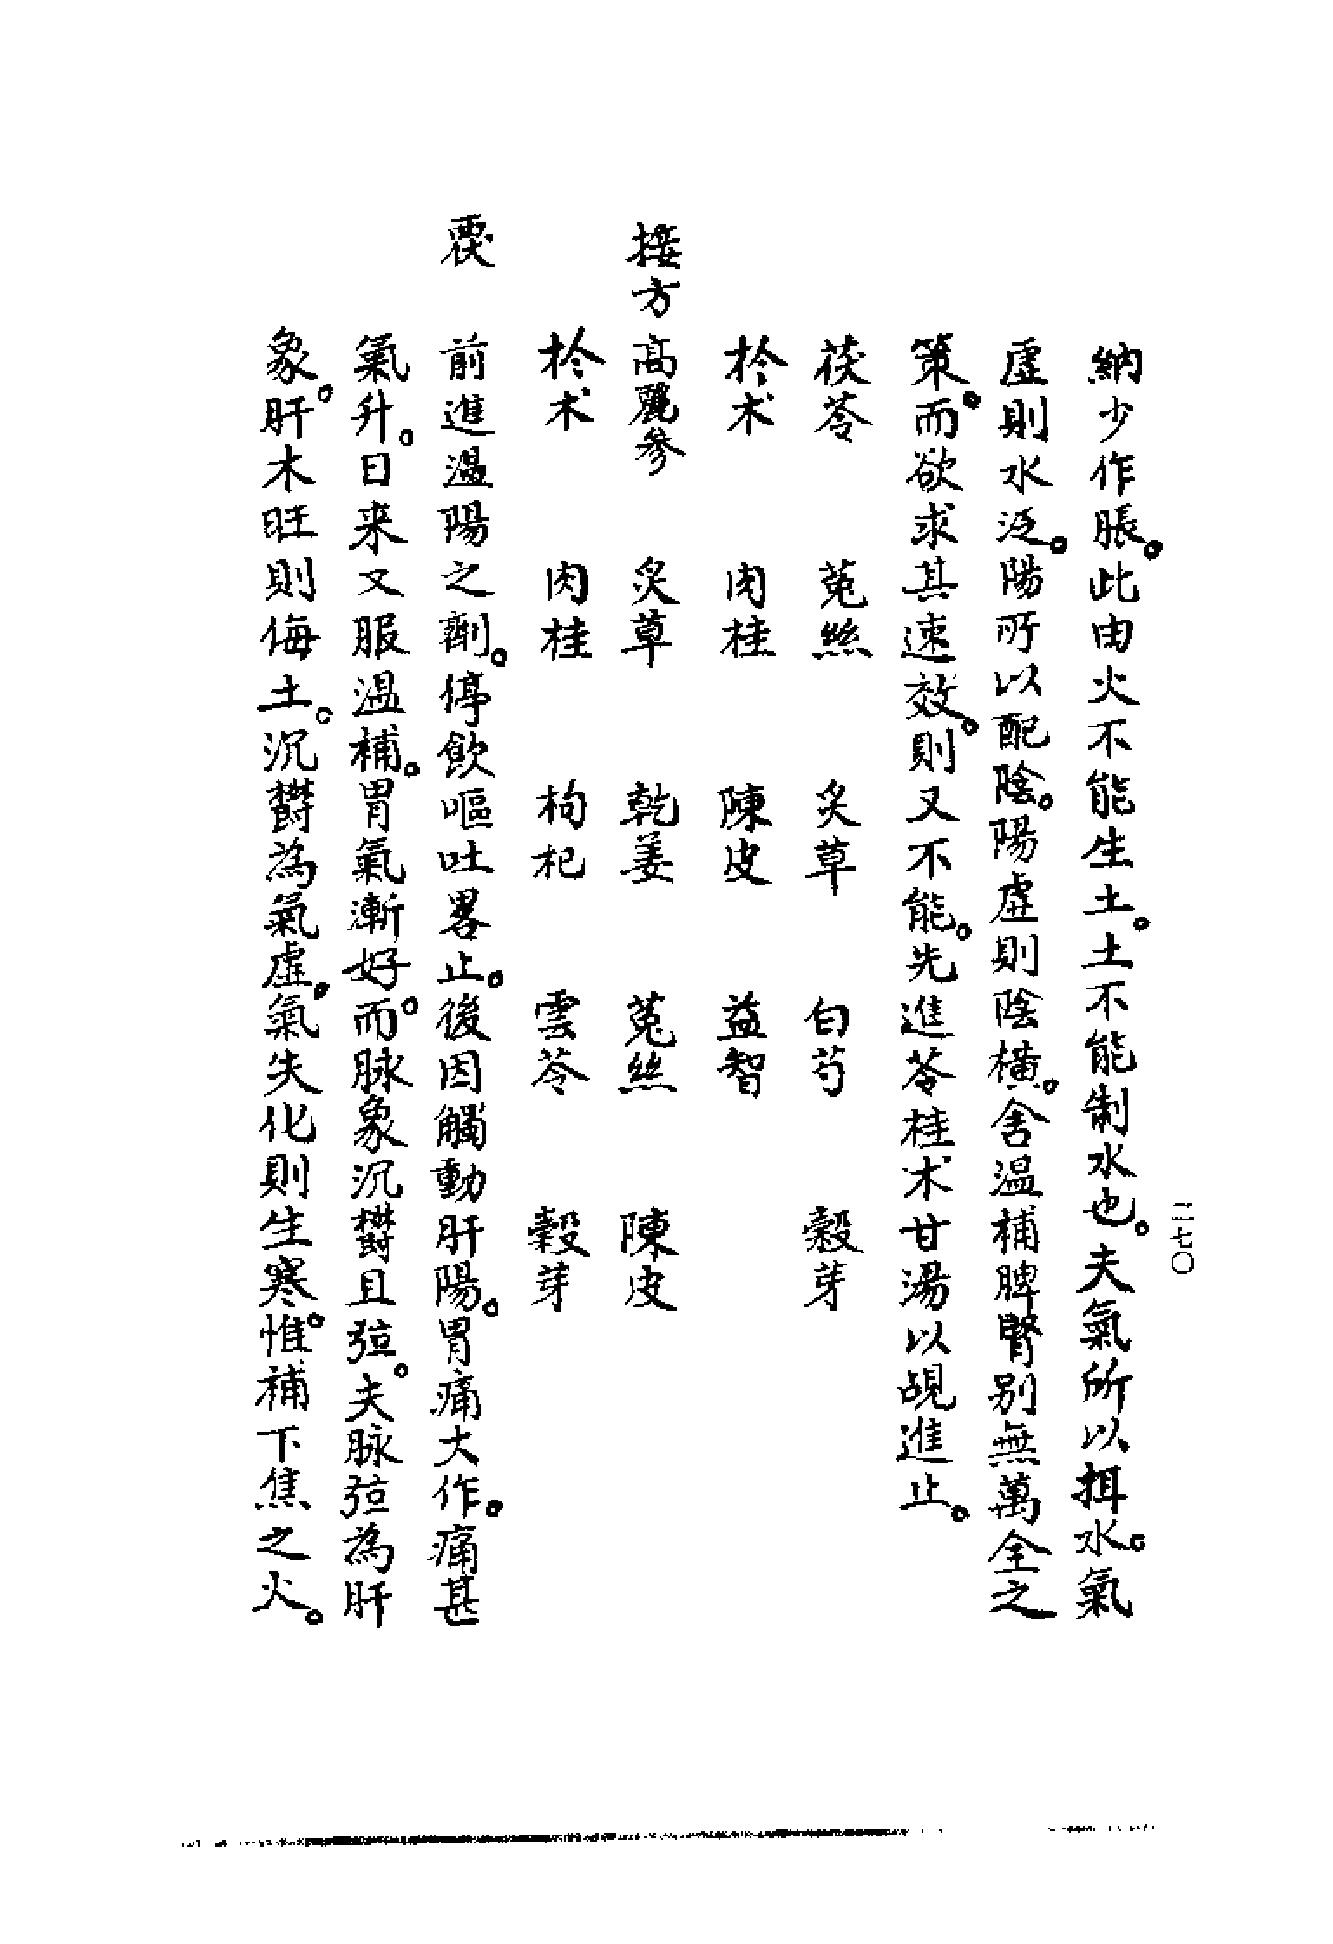 二七〇
納少作脹。此由火不能生土。土不能制水也。夫氣所以揖水。氣
虛則水泛。陽所以配陰。陽虛則陰橫。舍温補脾腎别無萬全之
策。而欲求其速效。則又不能。先進苓桂术甘湯以覘進止。
茯苓 菟絲 炙草 白芍 穀芽
於术 肉桂 陳皮 益智
接方 高麗參 炙草 乾姜 菟絲 陳皮
於术 肉桂 枸杞 雲苓 穀芽
覆 前進温陽之劑。停飲嘔吐畧止。後因觸動肝陽。胃痛大作。痛甚
氣升。日来又服温補。胃氣漸好。而脉象沉鬱且弦。夫脉弦為肝
象。肝木旺則侮土。沉鬱為氣虛。氣失化則生寒。惟補下焦之火。